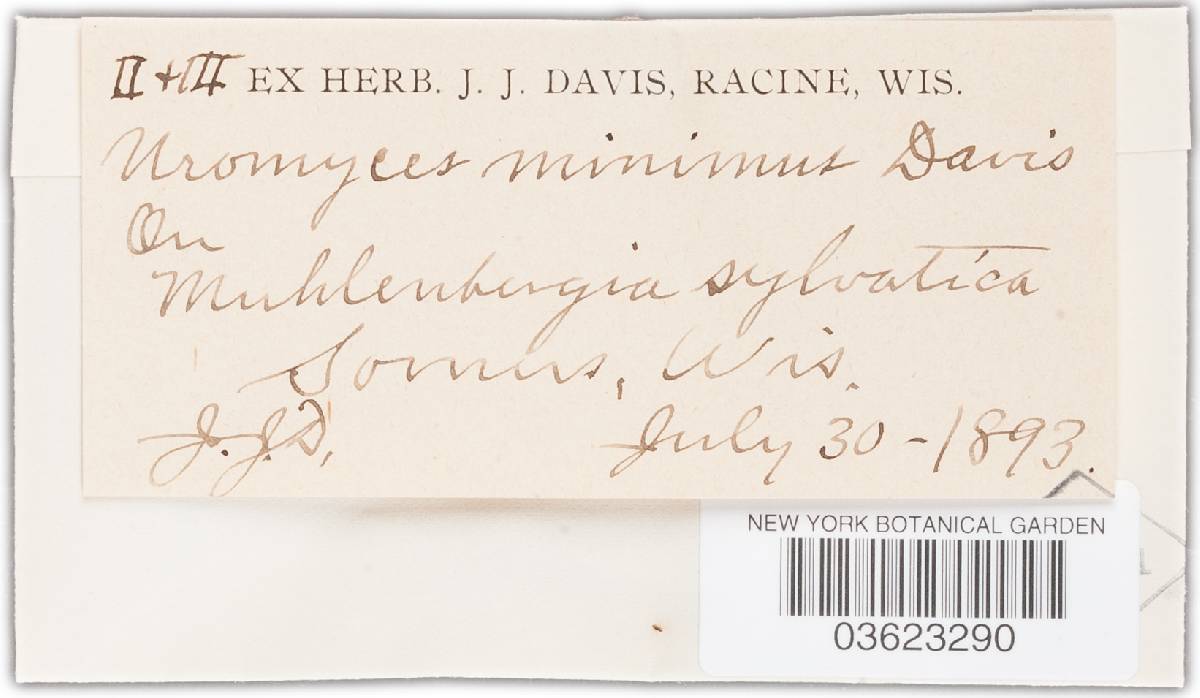 II + III EX HERB. J. J. DAVIS, RACINE, WIS.
Uromyces minimus Davis
On
Muhlenbergia sylvatica
Somers, Wis.
J.J.D, July 30-1893.
NEW YORK BOTANICAL GARDEN
03623290